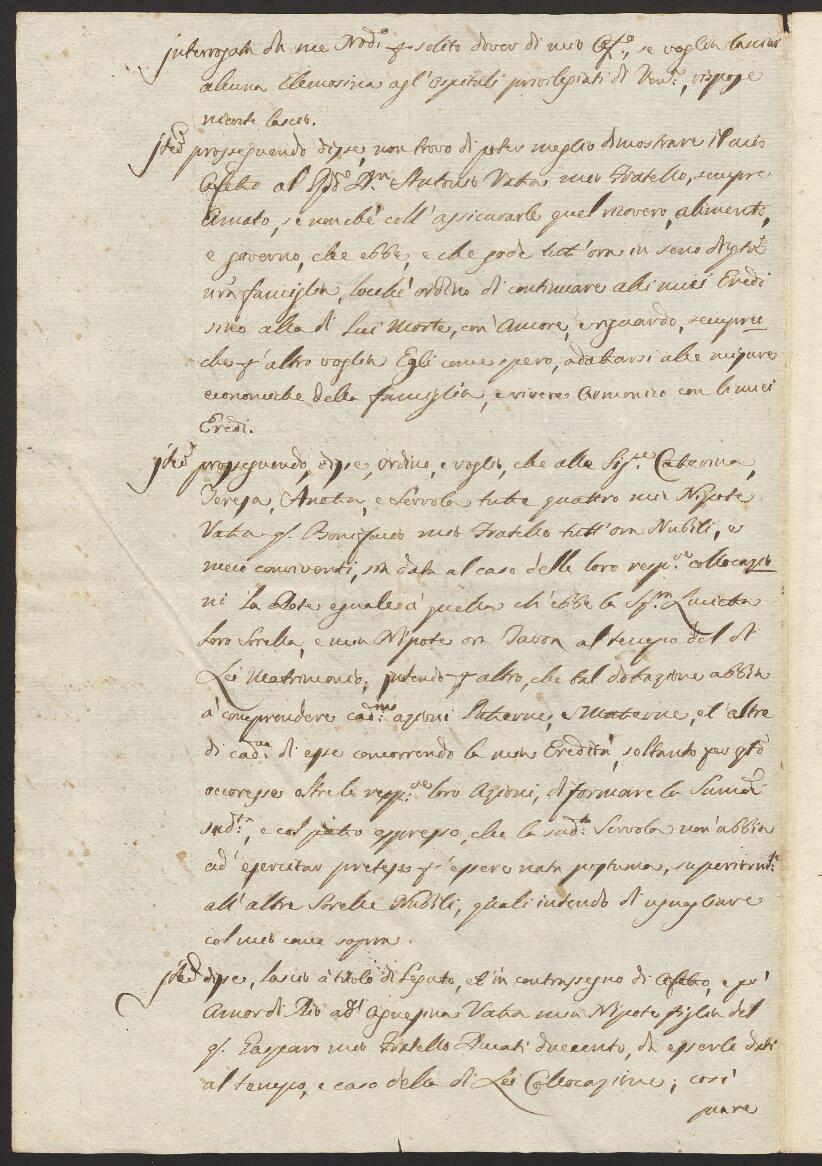 interrogata da me Nod.o p. solito dover di mio Off.o, se voglia lasciar
alcuna Elemosina agl'Ospitali privilegiati di Ven.a, rispose
niente lascio.
Item proseguendo disse, non trovo di poter meglio dimostrare il mio
Affetto al Sud.o D.n Antonio Vatta mio Fratello, sempre
Amato, se non che coll'assicurarle quel ricovero, alimento,
e governo, che ebbe, e che gode tutt'ora in seno di questa
nr̃a famiglia, locchè ordino di continuare alli miei Eredi
sino alla di Lui Morte, con Amore, e riguardo, sempre
che p. altro voglia Egli come spero, adattarsi alle misure
economiche della famiglia, e vivere Armonico con li miei
Eredi.
Item proseguendo, disse, ordino, e voglio, che alle Sig.re Catterina,
Teresa, Anetta, e Scevola tutte quattro mie Nipote
Vatta q. Bonifacio mio Fratello tutt'ora Nubili, e
meco conviventi, sia data al caso delle loro resp.ve collocazio
ni la Dote eguale a quella ch'ebbe la Sig.ra Lucietta
loro Sorella, e mia Nipote ora al tempo del di
Lei Matrimonio; intendo p. altro, che tal dotazione abbia
a comprendere cad.une azioni Paterne, e Materne, et altre
di cad.una di esse concorrendo la mia Eredità, soltanto per q.to
occoresse oltre le resp.ve loro Azioni, di formare la Summa
sud.a, e col patto espresso, che la sud.a Scevola non abbia
ad esercitar pretesa p. essere nata postuma,
all'altre Sorelle Nubili, quali intendo di uguagliare
col mio come sopra.
Item disse, lascio a titolo di Legato, et in contrassegno di Affetto, e per
Amor di Dio ad Agnesina Vatta mia Nipote figlia del
q. Gasparo mio Fratello Ducati duecento, da esserle dati
al tempo, e caso della di Lei Collocazione; così
pure